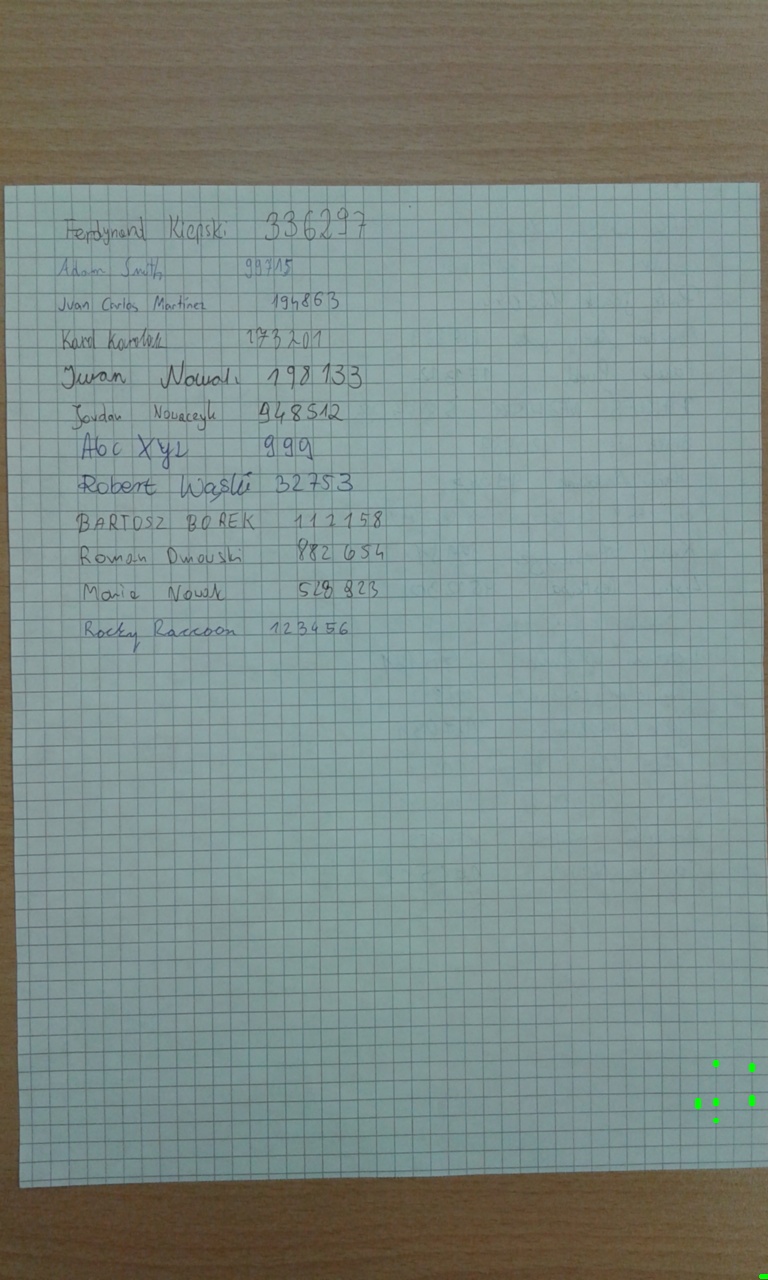 Ferdynand Kiepski 336297
Adam Smith 99715
Juan Carlos Martinez 194863
Karol Karolak 173201
Iwan Nowak 198133
Jordan Nowaczyk 948512
Abc Xyz 999
Robert Wąski 32753
BARTOSZ BOREK 112158
Roman Dmowski 882654
Maria Nowak 528823
Rocky Raccoon 123456